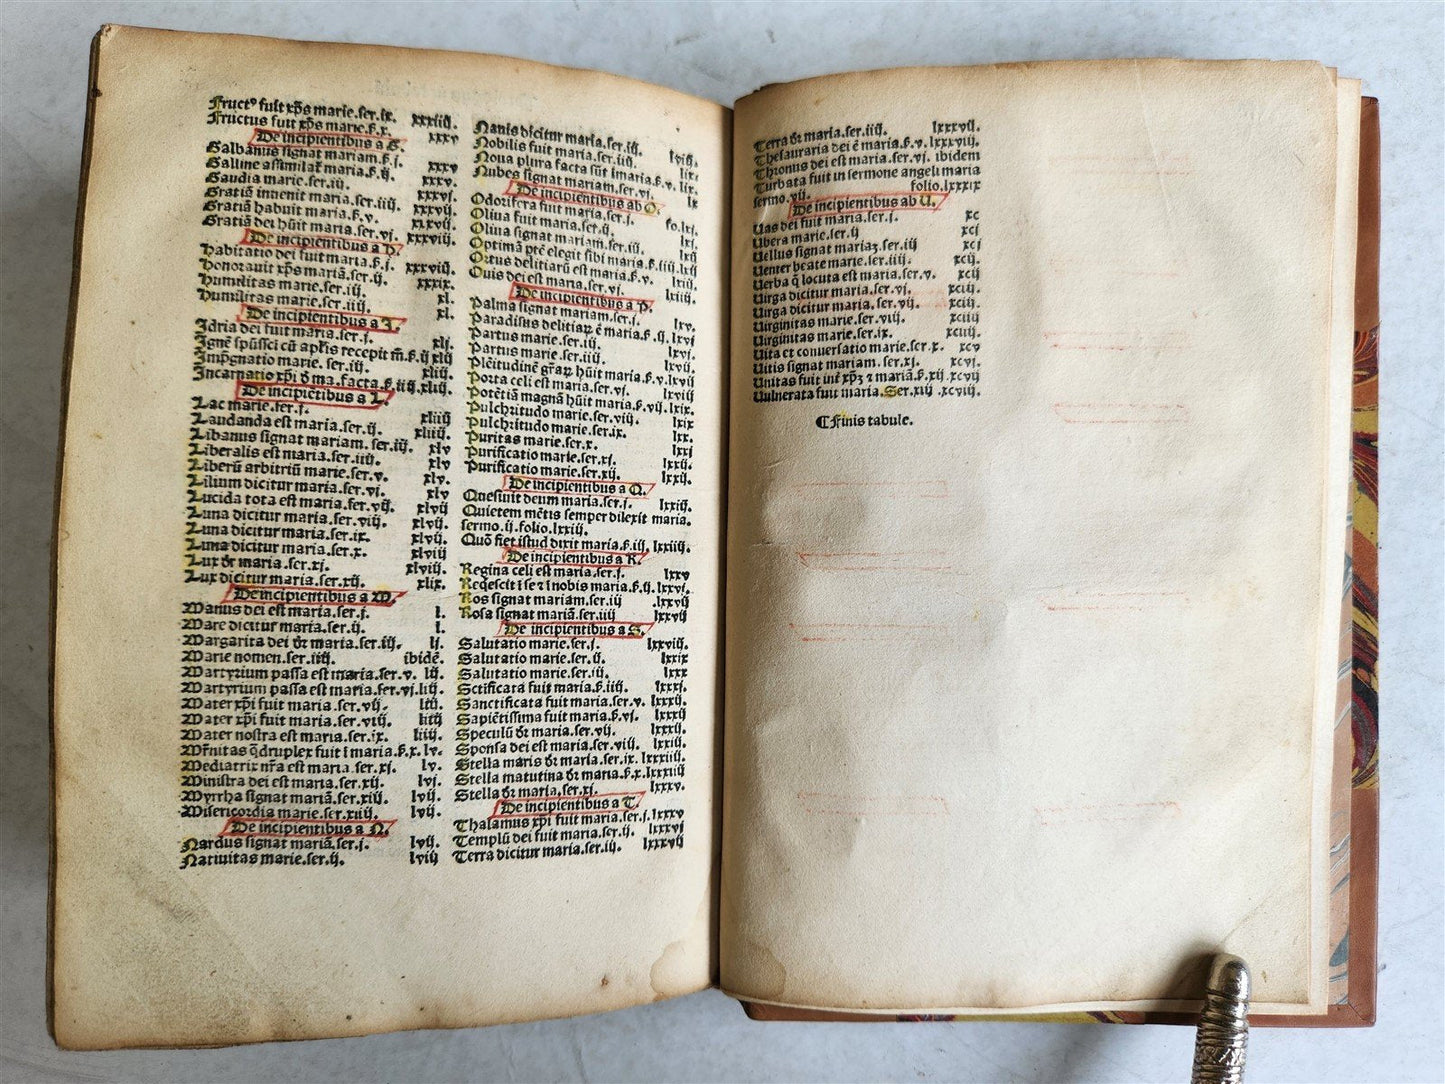 Fructꝰ fuit xp̄s marie.ser.ix. xxxiiij.
Fructus fuit xp̄s marie.ẞ.x. xxxv
De incipientibus a G.
Galbanus signat mariam.ẞ.j.
Galline assimilat̄ maria.ẞ.ij. xxxv
Gaudia marie.ser.iij. xxxv.
Gratiā inuenit maria.ser.iiij. xxxvj.
Gratiā habuit maria.ẞ.v. xxxvij.
Gratiā dei hūit maria.ser.vj. xxxvij.
De incipientibus a H. xxxviij.
Habitatio dei fuit maria.ẞ.j.
Honorauit xp̄s mariā.ser.ij. xxxviij.
Humilitas marie.ser.iij. xxxix.
Humilitas marie.ser.iiij. xl.
De incipientibus a I. xl.
Idria dei fuit maria.ser.j.
Ignē sp̄ūssci cū ap̄lis recepit m̄.ẞ.ij xlij
Imp̄gnatio marie.ser.iij.
Incarnatio xp̄i d̄ ma.facta.ẞ.iiij.xlij.
De incipiētibus a L.
Lac marie.ser.j.
Laudanda est maria.ser.ij. xliij
Libanus signat mariam.ser.iij. xliij.
Liberalis est maria.ser.iiij. xlv
Liberū arbitriū marie.ser.v. xlv
Lilium dicitur maria.ser.vj. xlv.
Lucida tota est maria.ser.vij. xlv
Luna dicitur maria.ser.viij. xlvij
Luna dicitur maria.ser.ix. xlvij.
Luna dicitur maria.ser.x. xlvij.
Lux dr̄ maria.ser.xj. xlviij
Lux dicitur maria.ser.xij. xlviij.
De incipientibus a M. xlix.
Manus dei est maria.ser.j. l.
Mare dicitur maria.ser.ij. l.
Margarita dei dr̄ maria.ser.iij. lj.
Marie nomen.ser.iiij. ibidē.
Martyrium passa est maria.ser.v. lij.
Martyrium passa est maria.ser.vj.lij.
Mater xp̄i fuit maria.ser.vij. liij.
Mater xp̄i fuit maria.ser.viij. liiij
Mater nostra est maria.ser.ix. liiij.
Mr̄nitas q̄druplex fuit ī maria.ẞ.x. lv.
Mediatrix nr̄a est maria.ser.xj. lv.
Ministra dei est maria.ser.xij. lvj.
Myrrha signat mariā.ser.xiij. lvij.
Misericordia marie.ser.xiiij. lvij.
De incipientibus a N.
Nardus signat mariā.ser.j. lvij.
Natiuitas marie.ser.ij. lviij
Nauis dicitur maria.ser.iij.
Nobilis fuit maria.ser.iiij. lviij.
Noua plura facta sūt ī maria.ẞ.v. lix.
Nubes signat mariam.ser.vj. lx
De incipientibus ab O.
Odorifera fuit maria.ser.j.
Oliua fuit maria.ser.ij. fo.lxj.
Oliua signat mariam.ser.iij. lxj.
Optimā ptē elegit sibi maria.ẞ.iiij.lxij
Ortus delitiarū est maria.ẞ.v. lxij.
Ouis dei est maria.ser.vj. lxiij.
De incipientibus a P.
Palma signat mariam.ser.j.
Paradisus delitiaꝝ ē maria.ẞ.ij. lxv.
Partus marie.ser.iij. lxvj
Partus marie.ser.iiij. lxvj.
Plētitudinē gr̄aꝝ hūit maria.ẞ.v.lxvij
Porta celi est maria.ser.vj. lxviij
Potētiā magnā hūit maria.ẞ.vij.lxix.
Pulchritudo marie.ser.viij. lxix
Pulchritudo marie.ser.ix. lxx.
Puritas marie.ser.x. lxxj
Purificatio marie.ser.xj. lxxij.
Purificatio marie.ser.xij. lxxij.
De incipientibus a Q.
Quesiuit deum maria.ser.j. lxxiij.
Quietem mētis semper dilexit maria.
sermo.ij.folio.lxxiij.
Quō fiet istud dixit maria.ẞ.iij. lxxiiij.
De incipientibus a R.
Regina celi est maria.ser.j. lxxv
Reqescit ī se ⁊ ī nobis maria.ẞ.ij.lxxvj.
Ros signat mariam.ser.iij .lxxvij
Rosa signat mariā.ser.iiij lxxvij
De incipientibus a S.
Salutatio marie.ser.j. lxxviij.
Salutatio marie.ser.ij. lxxix
Salutatio marie.ser.iij. lxxx
Sctificata fuit maria.ẞ.iiij. lxxxj.
Sanctificata fuit maria.ser.v. lxxxij.
Sapiētissima fuit maria.ẞ.vj. lxxxij
Speculū dr̄ maria.ser.vij. lxxxij.
Sponsa dei est maria.ser.viij. lxxxiij.
Stella maris dr̄ maria.ser.ix. lxxxiiij
Stella matutina dr̄ maria.ẞ.x.lxxxiiij
Stella dr̄ maria.ser.xj. lxxxv.
De incipientibus a T.
Thalamus xp̄i fuit maria.ser.j.lxxxv
Templū dei fuit maria.ser.ij. lxxxvj
Terra dicitur maria.ser.iij. lxxxvij
Terra dr̄ maria.ser.iiij. lxxxvij.
Thesauraria dei ē maria.ẞ.v. lxxxviij.
Thronus dei est maria.ser.vj. ibidem
Turbata fuit in sermone angeli maria
sermo.vij. folio.lxxxix
De incipientibus ab U.
Uas dei fuit maria.ser.j. xc
Ubera marie.ser.ij xcj
Uellus signat mariaꝫ.ser.iij xcj
Uenter beate marie.ser.iiij. xcij
Uerba q̄ locuta est maria.ser.v. xcij
Uirga dicitur maria.ser.vj. xciij
Uirga dicitur maria.ser.vij. xciij.
Uirginitas marie.ser.viij. xciiij
Uirginitas marie.ser.ix. xciiij.
Uita et conuersatio marie.ser.x. xcv
Uitis signat mariam.ser.xj. xcvj.
Unitas fuit int̄ xp̄ꝫ ⁊ mariā.ẞ.xij .xcvij
Uulnerata fuit maria.Ser.xiij .xcviij.
¶Finis tabule.